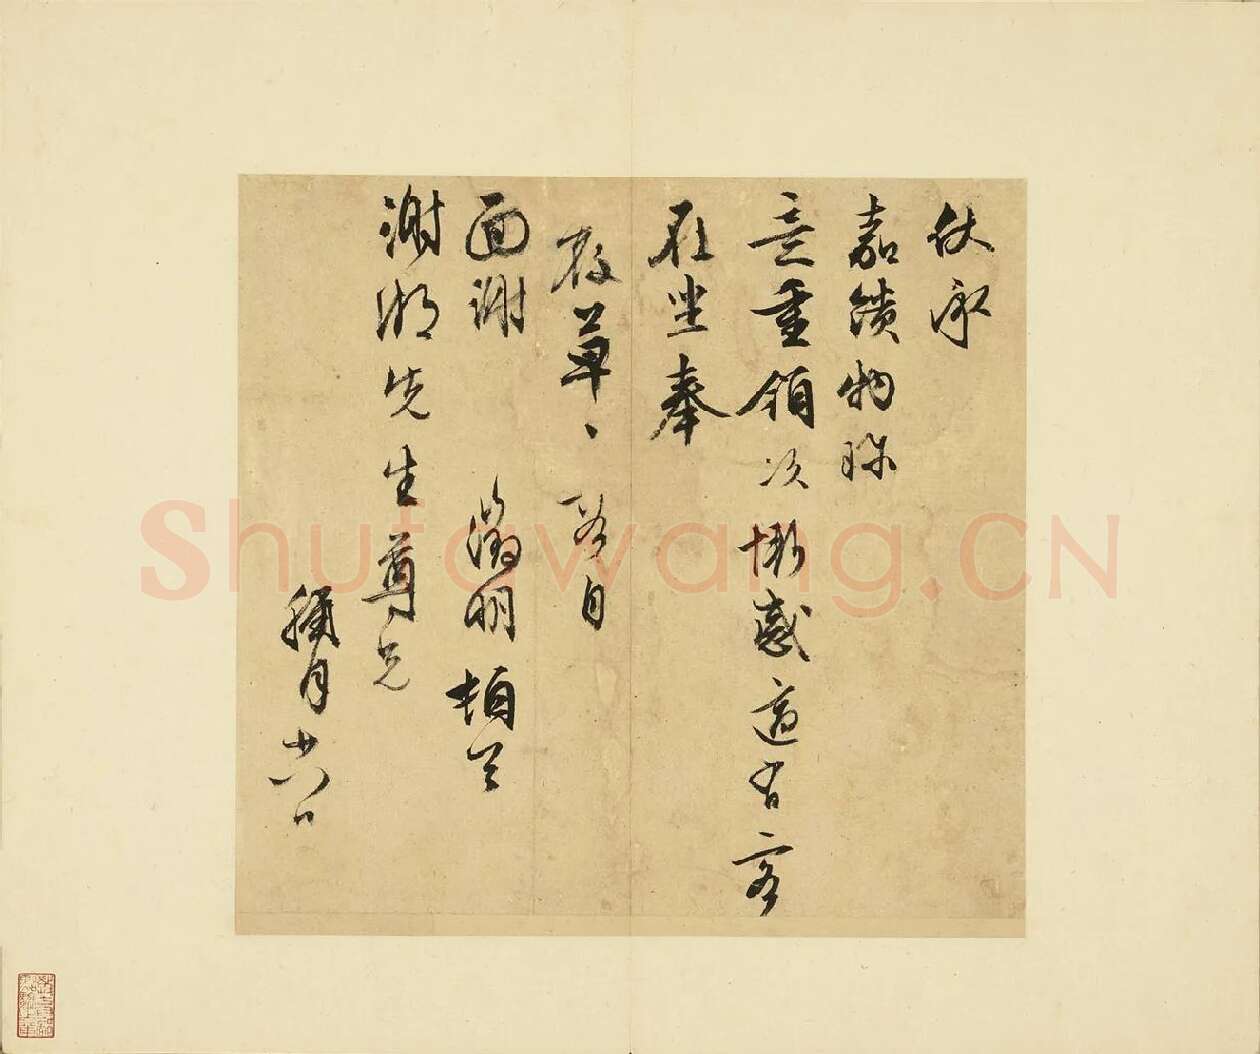 伏承
嘉馈物珎
意重領次慚感適有客
在坐奉
草〻容日
面謝
徵明頓首
謝湖先生尊兄
臈月廿六日
Shufawang.CN